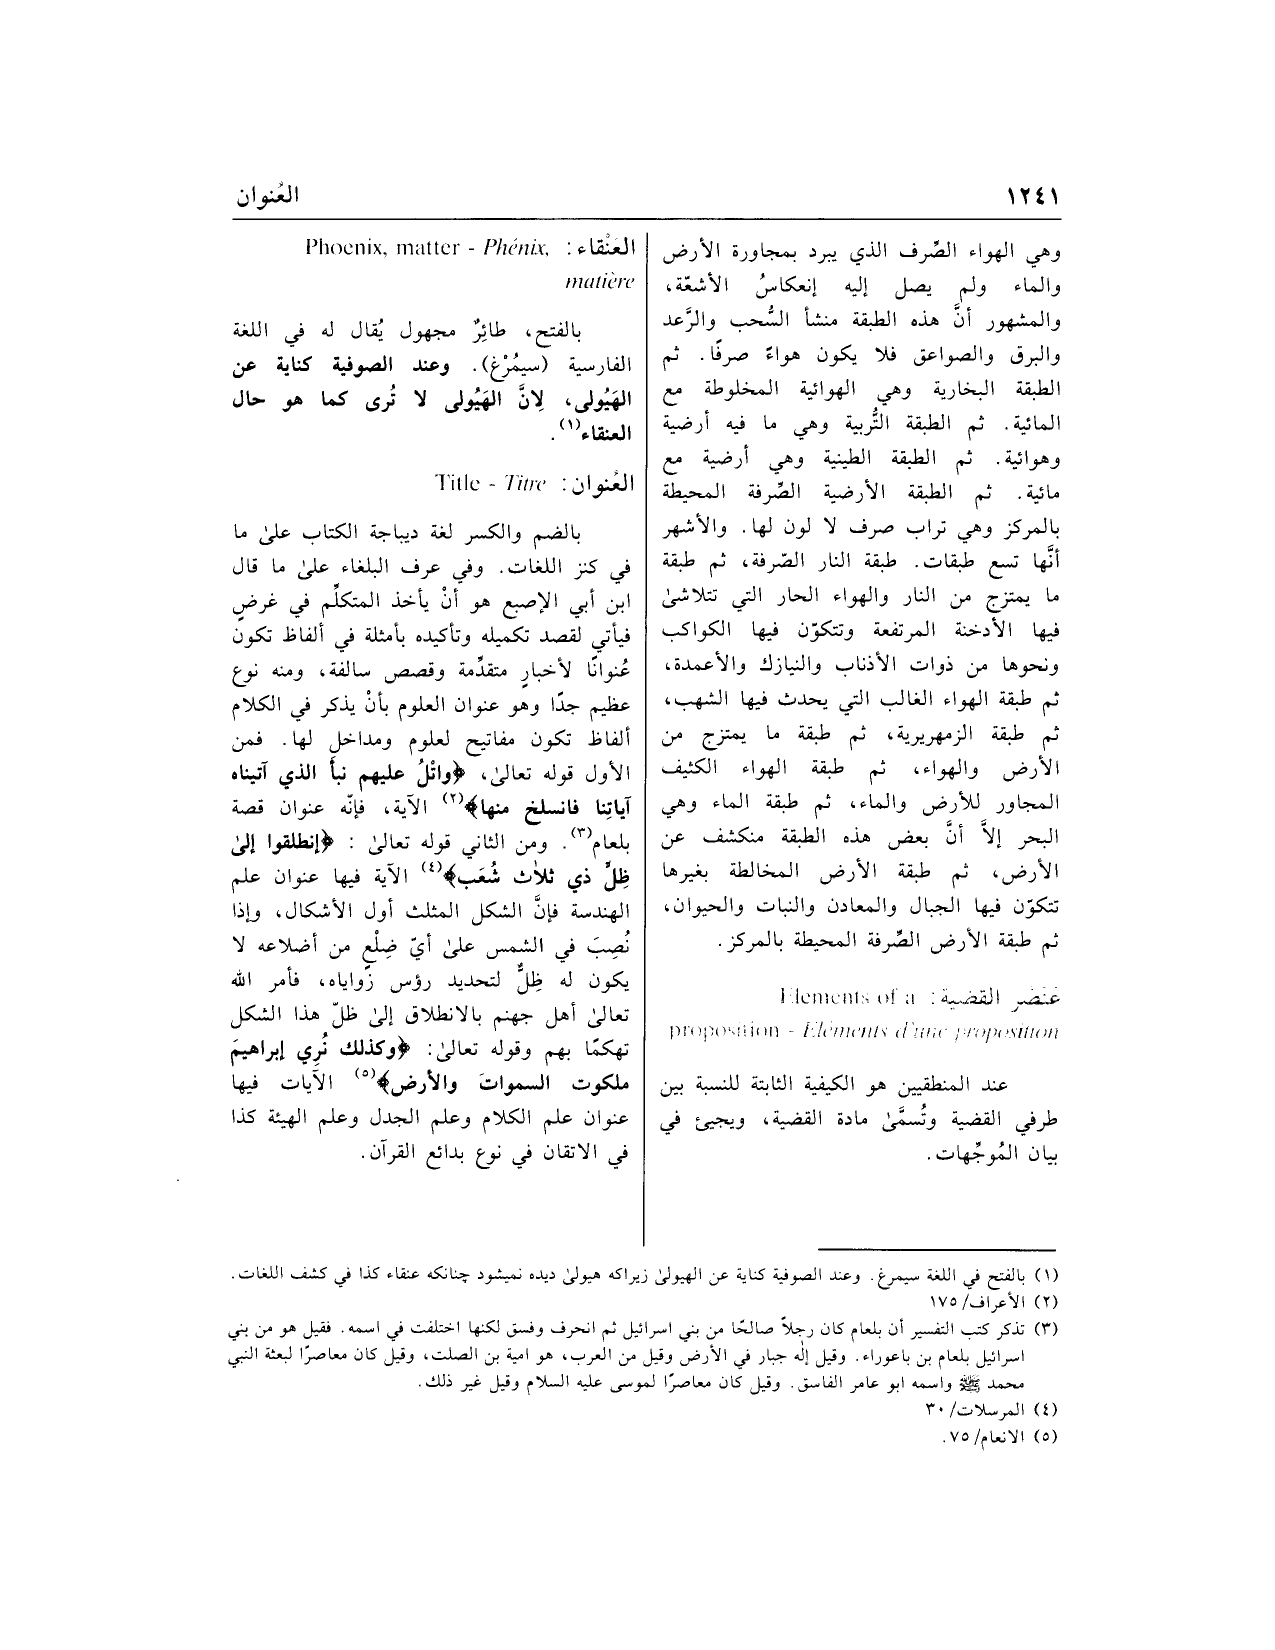 ١٢٤١
العُنوان
وهي الهواء الصِّرف الذي يبرد بمجاورة الأرض
والماء ولم يصل إليه إنعكاسُ الأشعّة،
والمشهور أنَّ هذه الطبقة منشأ السُّحب والرَّعد
والبرق والصواعق فلا يكون هواءً صرفًا. ثم
الطبقة البخارية وهي الهوائية المخلوطة مع
المائية. ثم الطبقة التُّربية وهي ما فيه أرضية
وهوائية. ثم الطبقة الطينية وهي أرضية مع
مائية. ثم الطبقة الأرضية الصِّرفة المحيطة
بالمركز وهي تراب صرف لا لون لها. والأشهر
أنَّها تسع طبقات. طبقة النار الصّرفة، ثم طبقة
ما يمتزج من النار والهواء الحار التي تتلاشىٰ
فيها الأدخنة المرتفعة وتتكوّن فيها الكواكب
ونحوها من ذوات الأذناب والنيازك والأعمدة،
ثم طبقة الهواء الغالب التي يحدث فيها الشهب،
ثم طبقة الزمهريرية، ثم طبقة ما يمتزج من
الأرض والهواء، ثم طبقة الهواء الكثيف
المجاور للأرض والماء، ثم طبقة الماء وهي
البحر إلاَّ أنَّ بعض هذه الطبقة منكشف عن
الأرض، ثم طبقة الأرض المخالطة بغيرها
تتكوّن فيها الجبال والمعادن والنبات والحيوان،
ثم طبقة الأرض الصِّرفة المحيطة بالمركز.
عنصر القضية: Elements of a
proposition - Eléments d'une proposition
عند المنطقيين هو الكيفية الثابتة للنسبة بين
طرفي القضية وتُسمَّىٰ مادة القضية، ويجيئ في
بيان المُوجِّهات.
العَنْقاء: Phoenix, matter - Phénix,
matière
بالفتح، طائِرٌ مجهول يُقال له في اللغة
الفارسية (سيمُرْغ). وعند الصوفية كناية عن
الهَيُولى، لِانَّ الهَيُولى لا تُرى كما هو حال
العنقاء(١).
العُنوان: Title - Titre
بالضم والكسر لغة ديباجة الكتاب علىٰ ما
في كنز اللغات. وفي عرف البلغاء علىٰ ما قال
ابن أبي الإصبع هو أنْ يأخذ المتكلِّم في غرضٍ
فيأتي لقصد تكميله وتأكيده بأمثلة في ألفاظ تكون
عُنوانًا لأخبارٍ متقدِّمة وقصص سالفة، ومنه نوع
عظيم جدًا وهو عنوان العلوم بأنْ يذكر في الكلام
ألفاظ تكون مفاتيح لعلوم ومداخل لها. فمن
الأول قوله تعالىٰ، ﴿واتْلُ عليهم نبأ الذي آتيناه
آياتِنا فانسلخ منها﴾(٢) الآية، فإنّه عنوان قصة
بلعام(٣). ومن الثاني قوله تعالىٰ : ﴿إنطلقوا إلىٰ
ظِلِّ ذي ثلاٰث شُعَب﴾(٤) الآية فيها عنوان علم
الهندسة فإنَّ الشكل المثلث أول الأشكال، وإذا
نُصِبَ في الشمس علىٰ أيّ ضِلْع من أضلاعه لا
يكون له ظِلٌّ لتحديد رؤس زواياه، فأمر الله
تعالىٰ أهل جهنم بالانطلاق إلىٰ ظلّ هذا الشكل
تهكمًا بهم وقوله تعالىٰ: ﴿وكذلك نُرِي إبراهيمَ
ملكوت السموات والأرض﴾(٥) الآيات فيها
عنوان علم الكلام وعلم الجدل وعلم الهيئة كذا
في الاتقان في نوع بدائع القرآن.
(١) بالفتح في اللغة سيمرغ. وعند الصوفية كناية عن الهيولىٰ زيراكه هيولىٰ ديده نميشود چنانكه عنقاء كذا في كشف اللغات.
(٢) الأعراف/ ١٧٥
(٣) تذكر كتب التفسير أن بلعام كان رجلاً صالحًا من بني اسرائيل ثم انحرف وفسق لكنها اختلفت في اسمه. فقيل هو من بني
اسرائيل بلعام بن باعوراء. وقيل إله جبار في الأرض وقيل من العرب، هو امية بن الصلت، وقيل كان معاصرًا لبعثة النبي
محمد ﷺ واسمه ابو عامر الفاسق. وقيل كان معاصرًا لموسى عليه السلام وقيل غير ذلك.
(٤) المرسلات/ ٣٠
(٥) الانعام/ ٧٥.